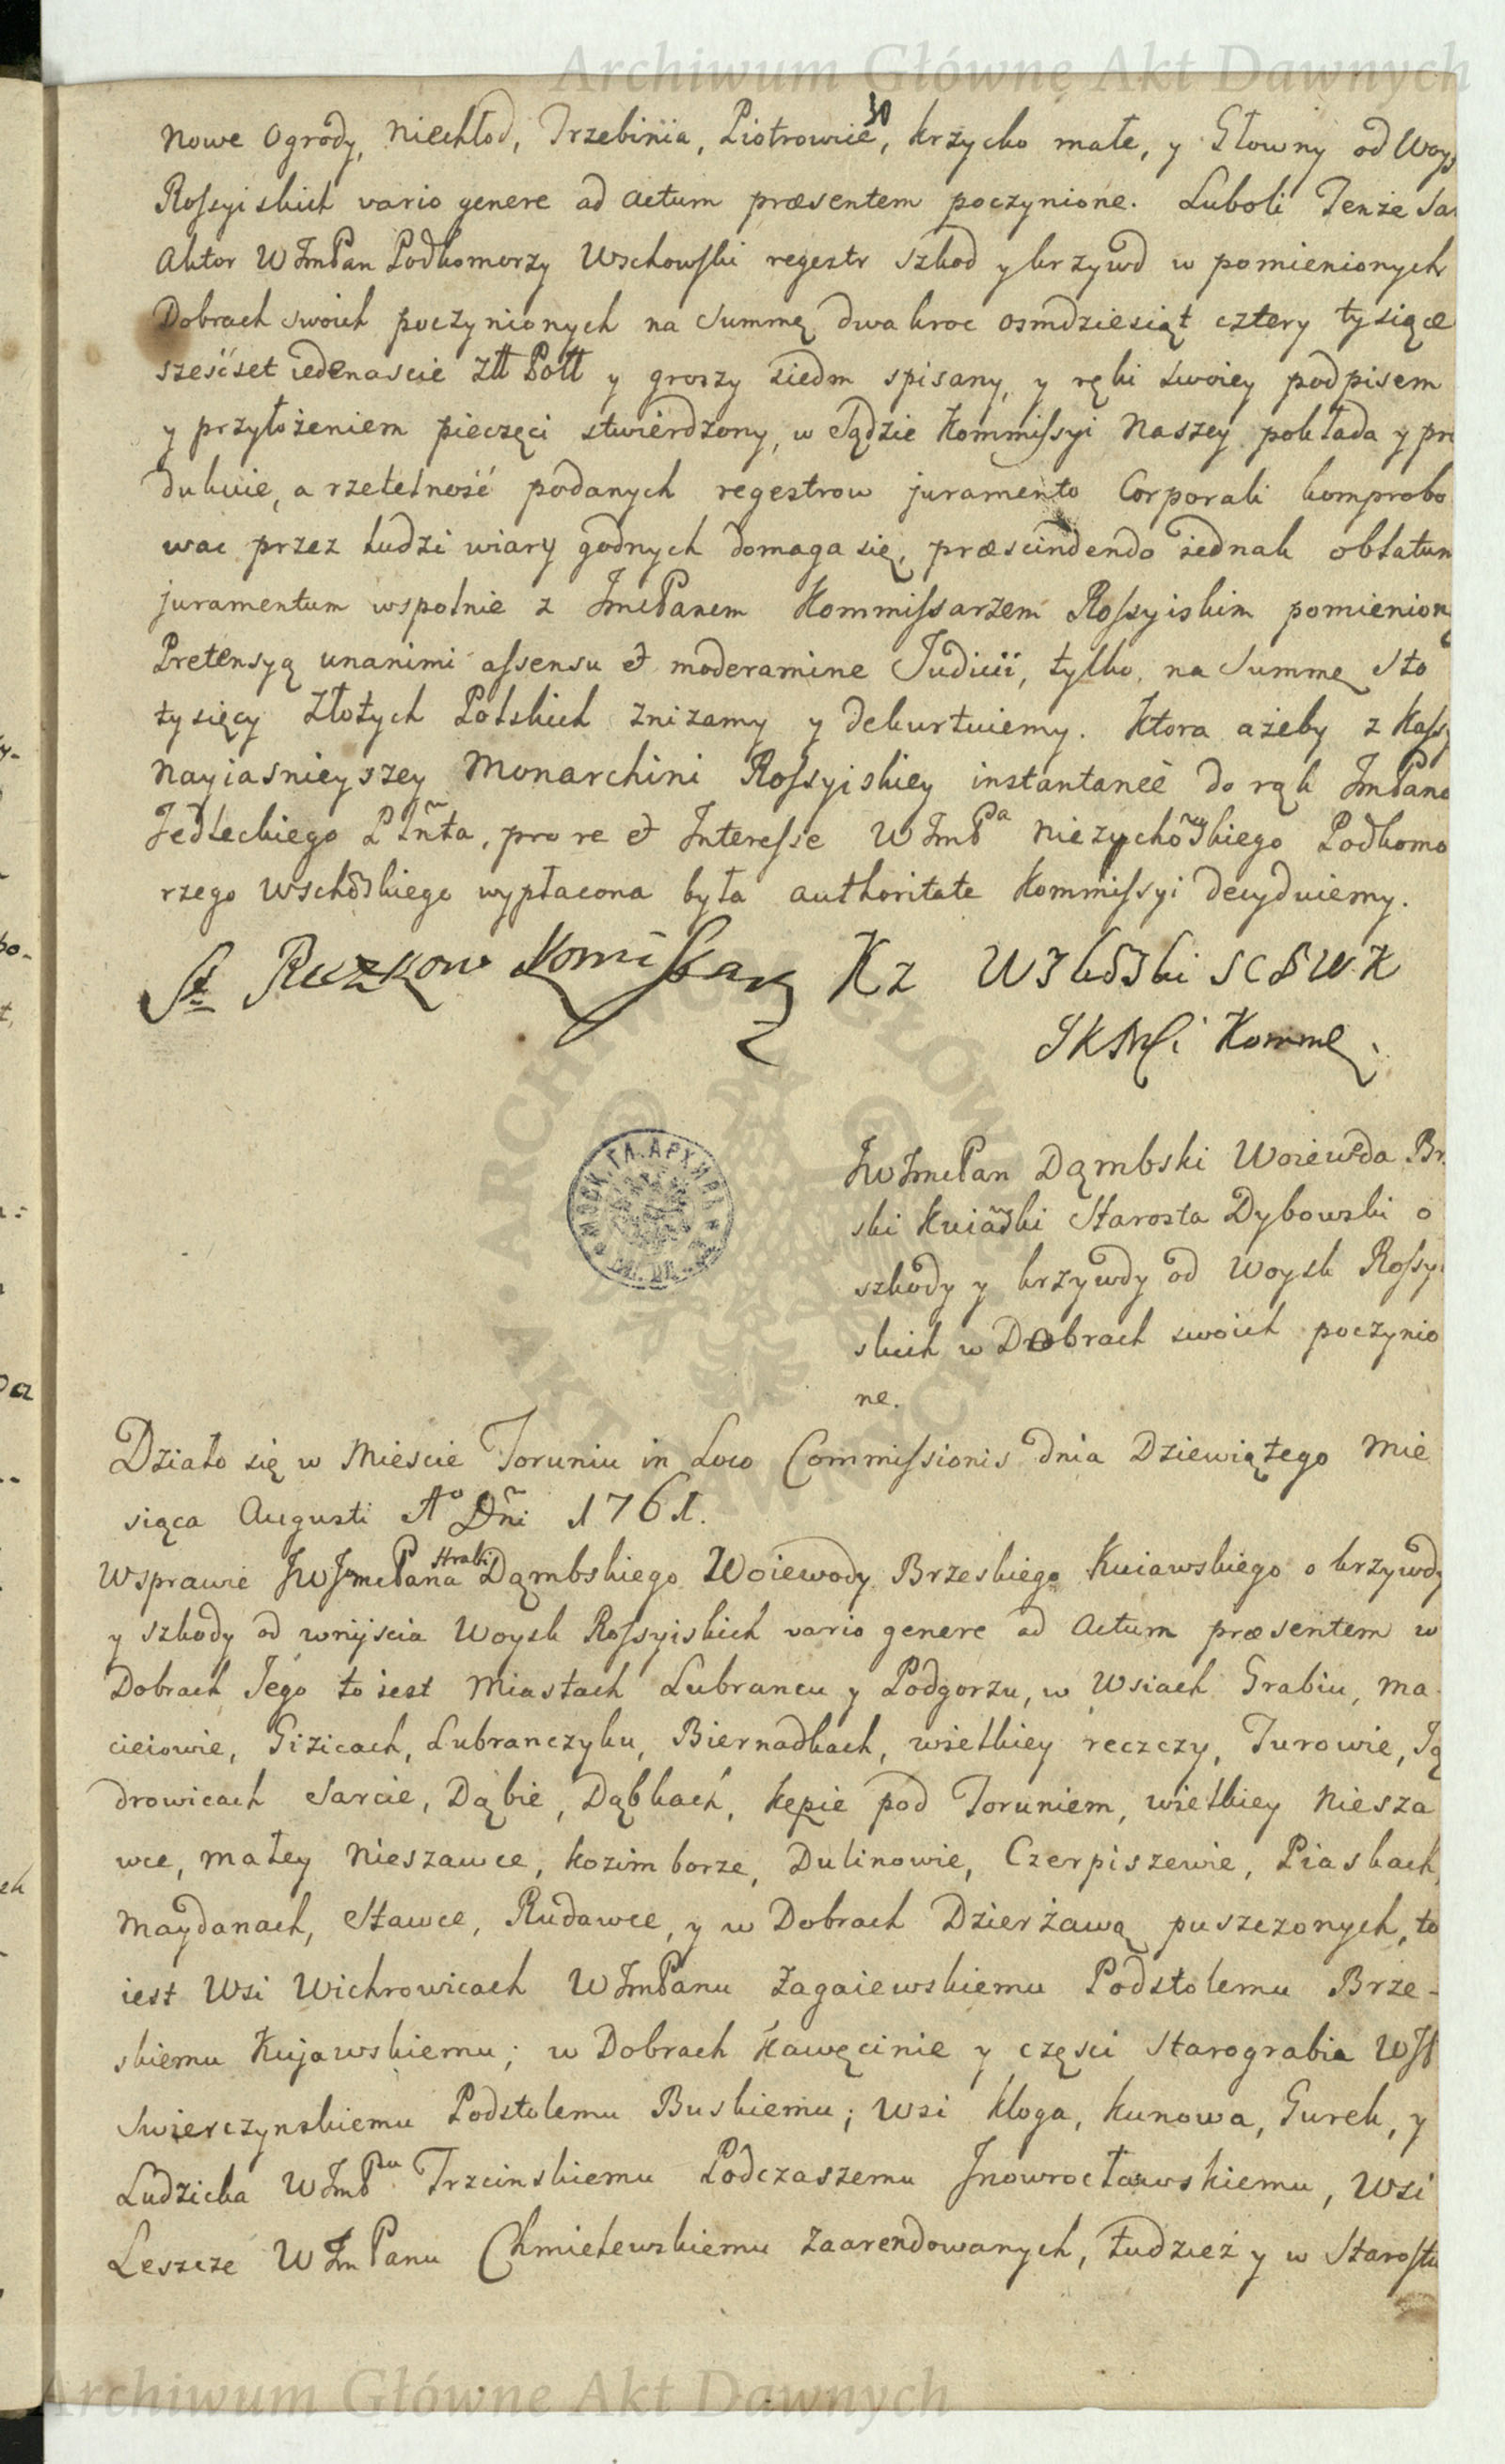 Archiwum Główne Akt Dawnych
30
Nowe Ogrody, Niechłod, Trzebinia, Piotrowice, krzycko małe, y Głowny od Woys
Rossyiskich vario genere ad actum præsentem poczynione. Luboli Tenże Sa
Aktor WJmPan Podkomorzy Wschowski regestr szkod y krzywd w pomienionych
Dobrach swoich poczynionych na Summę dwakroc osmdziesiąt cztery tysiące
sześćset iedenascie Złł Poll y groszy siedm spisany, y ręki swoiey podpisem
y przyłożeniem pieczęci stwierdzony, w Sądzie Kommissyi Naszey pokłada y pro
dukuie, a rzetelność podanych regestrow juramento Corporali komprobo
wac przez ludzi wiary godnych domaga się, præscindendo iednak oblatum
juramentum wspolnie z JmcPanem Kommissarzem Rossyiskim pomienion
Pretensyą unanimi assensu et moderamine Judicii, tylko na Summę Sto
tysięcy Złotych Polskich znizamy y dekurtuiemy. Ktora ażeby z Kassy
Nayiasnieyszey Monarchini Rossyiskiey instantaneè do rąk JmPana
Jedleckiego Plnta, pro re et Interesse WJmPa Niezychowskiego Podkomo
rzego Wschowskiego wypłacona była authoritate Kommissyi decyduiemy.
Ruzkow Komissarz KZ
Komm
МОСК. ГЛ. АРХИВА
ARCHIWUM GŁÓWNE AKT DAWNYCH
JWJmcPan Dąmbski Woiewoda Brz
ski Kuiawski Starosta Dybowski o
szkody y krzywdy od Woysk Rossyi
skich w Dobrach swoich poczynio
ne.
Działo się w Mieście Toruniu in Loco Commissionis dnia Dziewiątego Mie
siąca Augusti Ao Dni 1761.
W sprawie JWJmcPana Hrabi Dąmbskiego Woiewody Brzeskiego Kuiawskiego o krzywdy
y szkody od wnijscia Woysk Rossyiskich vario genere ad Actum præsentem w
Dobrach Jego to iest Miastach Lubrancu y Podgorzu, w Wsiach Grabiu, Ma
cieiowie, Gizicach, Lubranczyku, Biernadkach, wielkiey reczczy, Turowie, Ją
drowicach Sarcie, Dąbie, Dąbkach, kępie pod Toruniem, wielkiey Niesza
wce, małey Nieszawce, kozim borze, Dulinowie, Czerpiszewie, Piaskach,
Maydanach, Stawce, Rudawce, y w Dobrach Dzierżawą puszczonych, to
iest Wsi Wichrowicach WJmPanu Zagaiewskiemu Podstolemu Brze-
skiemu Kujawskiemu; w Dobrach Kawęcinie y części Starograbia WJP
Swierczynskiemu Podstolemu Buskiemu; Wsi kloga, kunowa, Gurek, y
Ludzicka WJmPnu Trzcinskiemu Podczaszemu Jnowrocławskiemu, Wsi
Leszcze WJmPanu Chmielewskiemu zaarendowanych, tudzież y w Starostw
Archiwum Główne Akt Dawnych